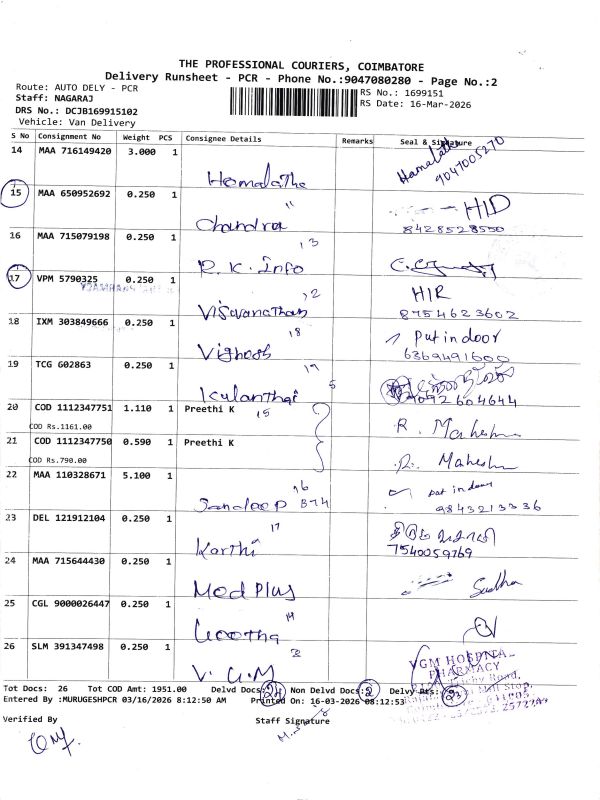 THE PROFESSIONAL COURIERS, COIMBATORE
Delivery Runsheet - PCR - Phone No.:9047080280 - Page No.:2
Route: AUTO DELY - PCR
Staff: NAGARAJ
DRS No.: DCJB169915102
Vehicle: Van Delivery
RS No.: 1699151
RS Date: 16-Mar-2026
S No Consignment No Weight PCS Consignee Details Remarks Seal & Signature
14 MAA 716149420 3.000 1 Hemalatha
9047005270
15 MAA 650952692 0.250 1 Chandra 11
8428528550
16 MAA 715079198 0.250 1 R.K. Info 13
17 VPM 5790325 0.250 1 Visavanathan 12 HIR
8754623602
18 IXM 303849666 0.250 1 Vighnesh 18 Put in door
6369491600
19 TCG 602863 0.250 1 Kulanthai 19
9092604644
20 COD 1112347751 1.110 1 Preethi K 15 R. Mahesh
COD Rs.1161.00
21 COD 1112347750 0.590 1 Preethi K R. Mahesh
COD Rs.790.00
22 MAA 110328671 5.100 1 Sandeep 16 put in door
9843213336
23 DEL 121912104 0.250 1 Karthi 17
7540059769
24 MAA 715644430 0.250 1 Med Plus Sudha
25 CGL 9000026447 0.250 1 Geetha 14
26 SLM 391347498 0.250 1 V.G.M
VGM HOSPITAL
PHARMACY
Tot Docs: 26 Tot COD Amt: 1951.00 Delvd Docs: 24 Non Delvd Docs: 2 Delvy Pts: 23
Entered By :MURUGESHPCR 03/16/2026 8:12:50 AM Printed On: 16-03-2026 08:12:53
Verified By Staff Signature